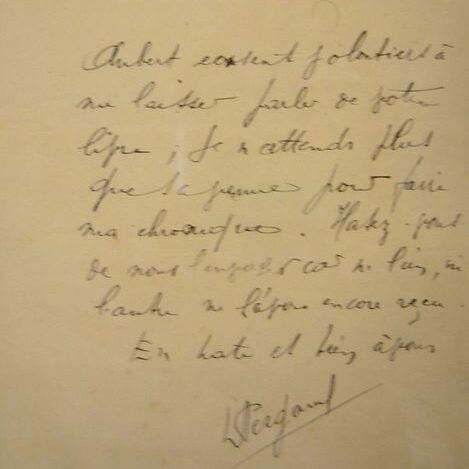 Aubert consent volontiers à
me laisser parler de votre
livre ; Je n'attends plus
que sa venue pour faire
ma chronique. Hatez-vous
de nous l'envoyer car ni l'un, ni
l'autre ne l'avons encore reçu.
En hate et bien à vous
L Pergaud